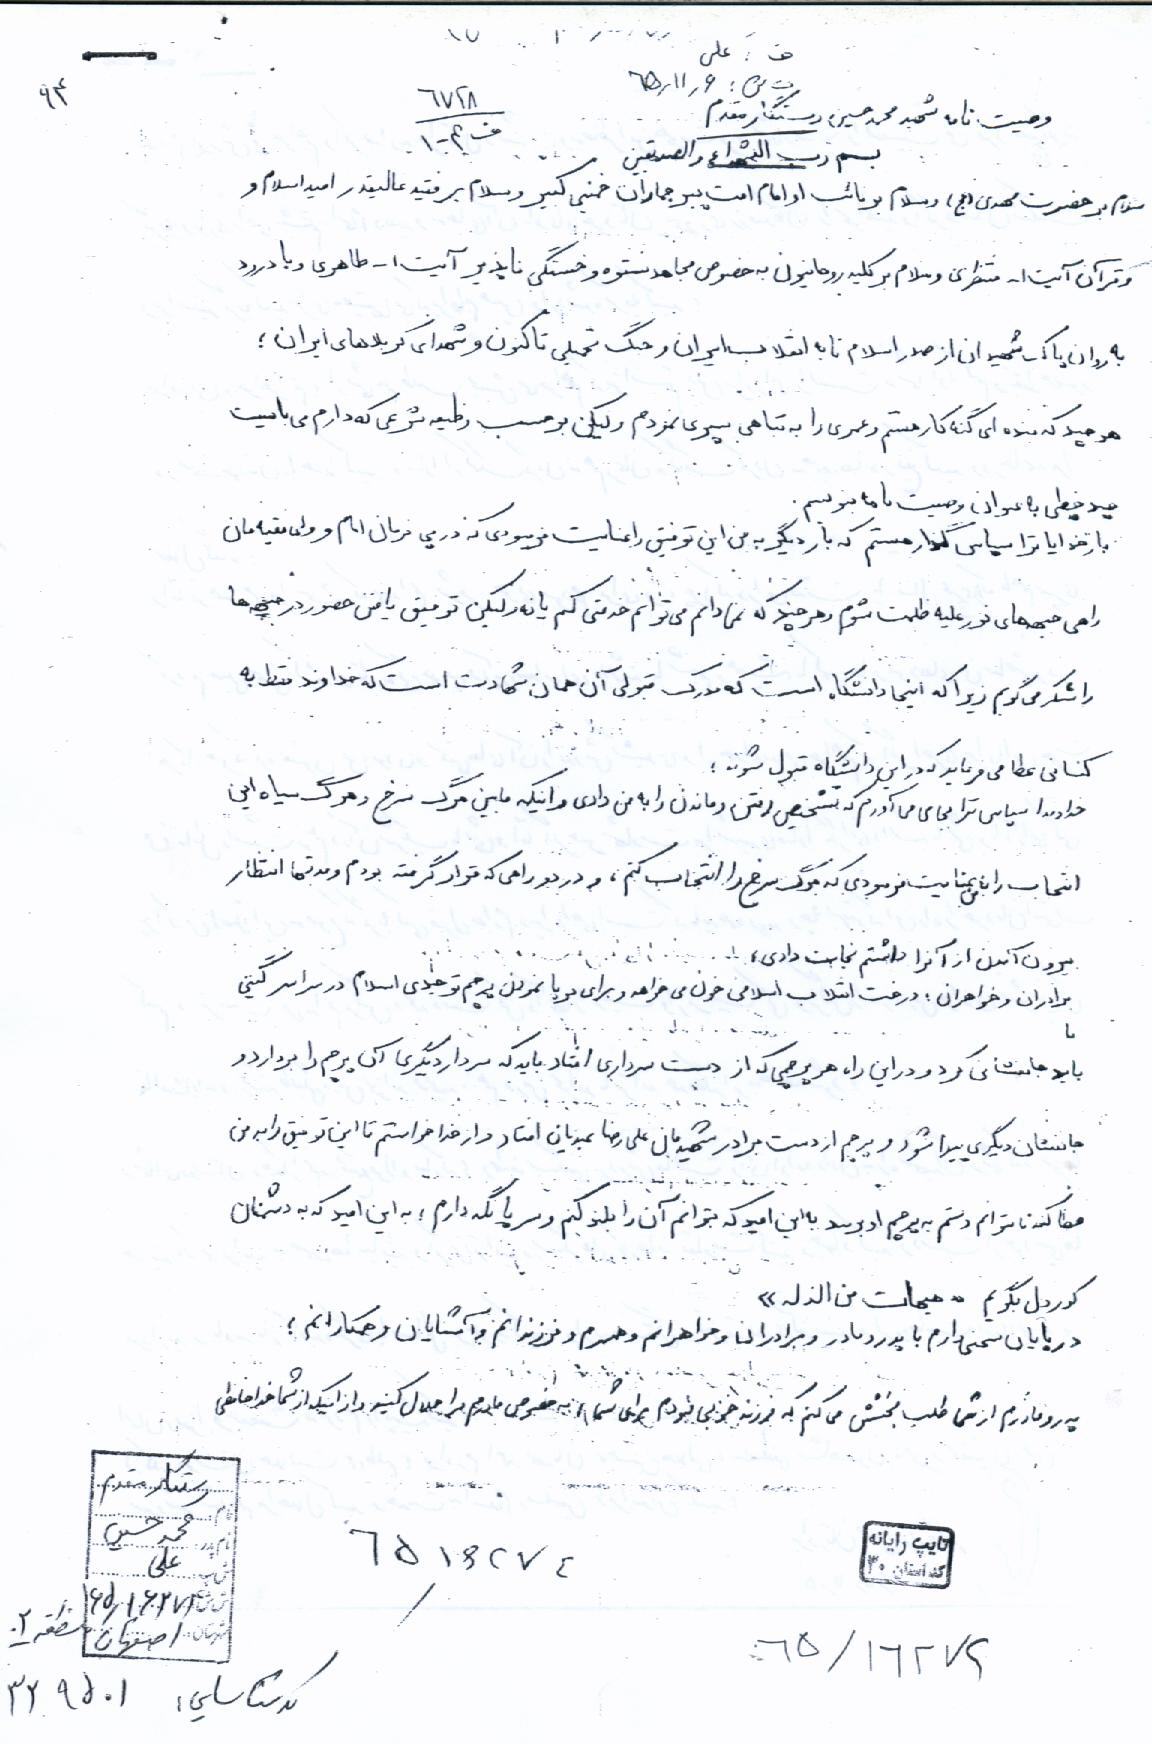 ف : علی
ت ش : ۶ ر ۱۱ ر ۶۵
۹۴
۶۷۲۸
ف ۴-۱
وصیت نامه شهید محمد حسین رستگار مقدم
بسم رب الشهداء والصدیقین
سلام بر حضرت مهدی (عج) وسلام بر نائب او امام امت پیر جماران خمینی کبیر وسلام بر فقید عالیقدر امید اسلام و
و قرآن آیت ا... منتظری وسلام بر کلیه روحانیون به خصوص مجاهد نستوه و خستگی ناپذیر آیت ا... طاهری و با درود
به روان پاک شهیدان از صدر اسلام تا به انقلاب ایران و جنگ تحمیلی تاکنون و شهدای کربلاهای ایران ؛
هر چند که بنده ای گنه کار هستم و عمری را به تباهی سپری نمودم ولیکن بر حسب وظیفه شرعی که دارم می بایست
چند خطی به عنوان وصیت نامه بنویسم .
بارخدایا ترا سپاس گذار هستم که بار دیگر به من این توفیق را عنایت فرمودی که در پی فرمان امام و ولی فقیه مان
راهی جبهه های نور علیه ظلمت شوم و هر چند که نمی دانم می توانم خدمتی کنم یا نه ولیکن توفیق یافتن حضور در جبهه ها
را شکر می گویم زیرا که اینجا دانشگاه است که مدرک قبولی آن همان شهادت است که خداوند فقط به
کسانی عطا می فرماید که در این دانشگاه قبول شوند ؛
خداوندا سپاس ترا بجای می آورم که تشخیص رفتن و ماندن را به من دادی و اینکه مابین مرگ سرخ و مرگ سیاه این
انتخاب را به من عنایت فرمودی که مرگ سرخ را انتخاب کنم ، و در دو راهی که قرار گرفته بودم و مدتها انتظار
بیرون آمدن از آنرا داشتم نجات دادی ؛
برادران و خواهران ؛ درخت انقلاب اسلامی خون می خواهد و برای برپا نمودن پرچم توحیدی اسلام در سراسر گیتی
باید جانفشانی کرد و در این راه هر پرچمی که از دست سرداری افتاد باید که سردار دیگری آن پرچم را بردارد و
جانفشان دیگری پیدا شود و پرچم از دست برادر شهیدمان علی رضا افتاد و از خدا خواستم تا این توفیق را به من
عطا کند تا بتوانم دستم به پرچم او برسد به این امید که بتوانم آن را بلند کنم و سر پا نگه دارم ؛ به این امید که به دشمنان
کوردل بگویم « هیهات من الذله »
در پایان سخنی دارم با پدر و مادر و برادران و خواهرانم و همسرم و فرزندانم و آشنایان و همکارانم ؛
پدر و مادرم از شما طلب بخشش می کنم که فرزند خوبی نبودم برای شما ، به خصوص مادرم مرا حلال کنید و از اینکه از شما خداحافظی
رستگار مقدم
نام محمد حسین
نام پدر علی
۶۵/۱۶۲۷۴
شهرستان اصفهان
منطقه ۲
۶۵۱۶۲۷۴
تایپ رایانه
کد استان ۳۰
۶۵/۱۶۲۷۴
کد شناسایی : ۳۲۹۵۰۱